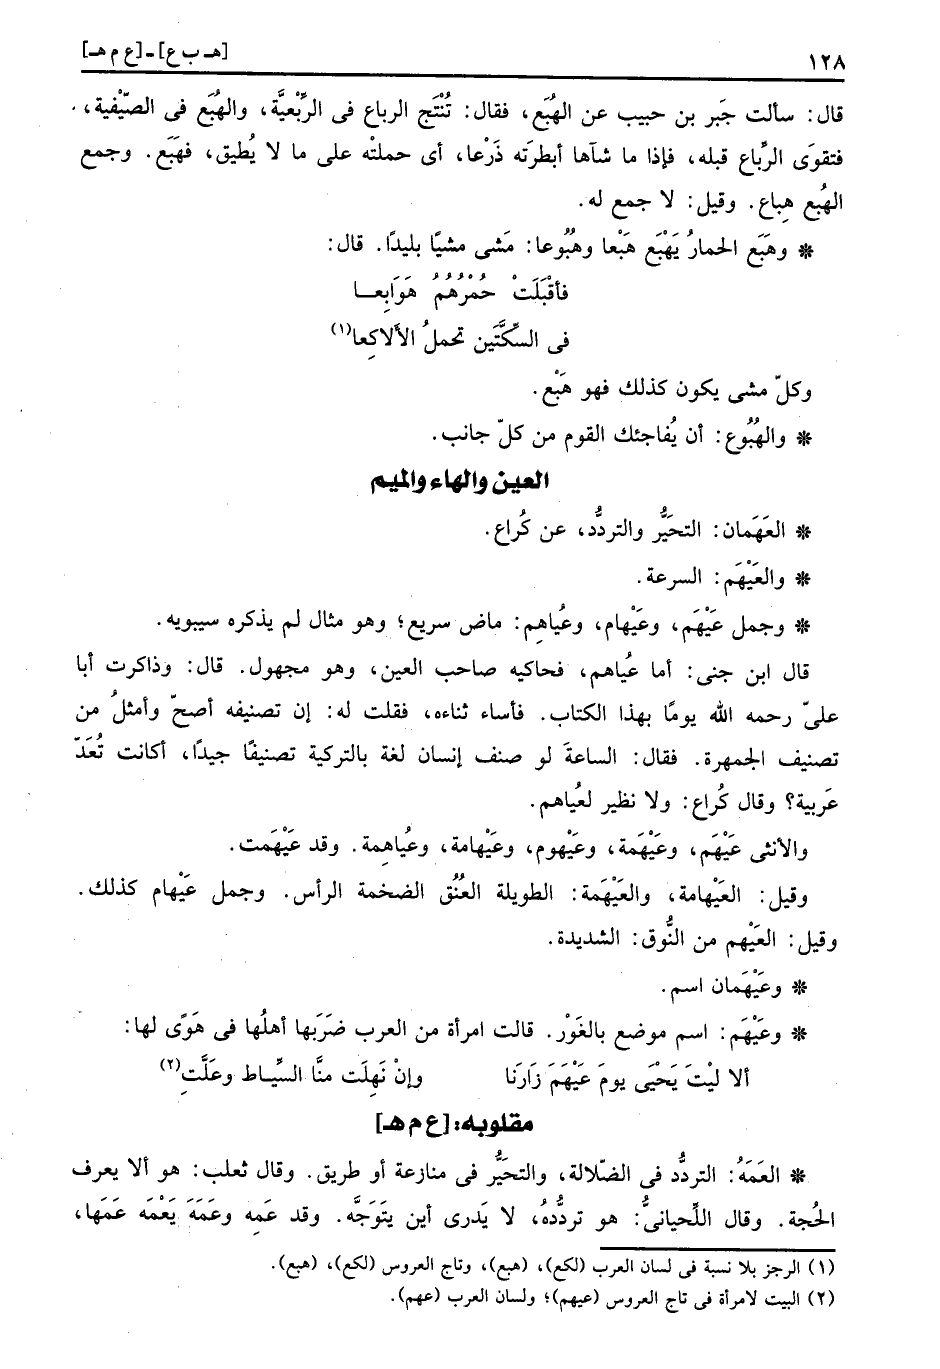 ١٢٨ [هـ ب ع] ـ [ع م هـ]
قال: سألت جَبر بن حبيب عن الهُبَع، فقال: تُنْتَج الرباع فى الرِّبْعيَّة، والهُبَع فى الصَّيْفية،
فتقوَى الرِّباع قبله، فإذا ما شآها أبطرَته ذَرْعا، أى حملتْه على ما لا يُطيق، فهَبَع. وجمع
الهُبع هِباع. وقيل: لا جمع له.
* وهَبَع الحمارُ يَهْبَع هَبْعا وهُبُوعا: مَشى مشيًا بليدًا. قال:
فأقْبَلَتْ حُمْرُهُمُ هَوَابِعا
فى السكَّتَين تحملُ الألاكِعا(١)
وكلّ مشى يكون كذلك فهو هَبْع.
* والهُبُوع: أن يُفاجئك القوم من كلّ جانب.
العين والهاء والميم
* العَهَمان: التحَيُّر والتردُّد، عن كُراع.
* والعَيْهَم: السرعة.
* وجمل عَيْهَم، وعَيْهام، وعُياهم: ماض سريع؛ وهو مثال لم يذكره سيبويه.
قال ابن جنى: أما عُياهم، فحاكيه صاحب العين، وهو مجهول. قال: وذاكرت أبا
علىّ رحمه الله يومًا بهذا الكتاب. فأساء ثناءه، فقلت له: إن تصنيفه أصحّ وأمثلُ من
تصنيف الجمهرة. فقال: الساعةَ لو صنف إنسان لغة بالتركية تصنيفًا جيدًا، أكانت تُعَدّ
عَربية؟ وقال كُراع: ولا نظير لعُياهم.
والأنثى عَيْهَم، وعَيْهَمة، وعَيْهوم، وعَيْهامة، وعُياهمة. وقد عَيْهَمت.
وقيل: العَيْهامة، والعَيْهَمة: الطويلة العُنُق الضخمة الرأس. وجمل عَيْهام كذلك.
وقيل: العَيْهم من النُّوق: الشديدة.
* وعَيْهَمان اسم.
* وعَيْهَم: اسم موضع بالغَوْر. قالت امرأة من العرب ضَرَبها أهلُها فى هَوًى لها:
ألا ليْتَ يَحْيَى يومَ عَيْهَمَ زَارَنَا وإنْ نَهِلَت منَّا السِّياط وعَلَّتِ(٢)
مقلوبه: [ع م هـ]
* العَمَهُ: التردُّد فى الضّلالة، والتحَيُّر فى منازعة أو طريق. وقال ثعلب: هو ألا يعرف
الحُجة. وقال اللِّحيانىُّ: هو تردُّدهُ، لا يَدرى أين يتوَجَّه. وقد عَمِه وعَمَهَ يَعْمَه عَمَها،
(١) الرجز بلا نسبة فى لسان العرب (لكع)، (هبع)، وتاج العروس (لكع)، (هبع).
(٢) البيت لامرأة فى تاج العروس (عيهم)؛ ولسان العرب (عهم).